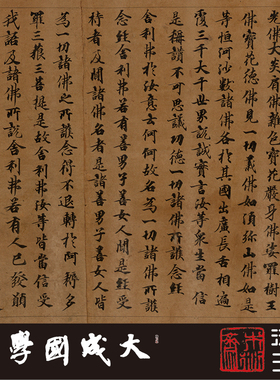 光佛大炎肩佛雜色寶花嚴身佛娑羅樹王
佛寶花德佛見一切義佛如須弥山佛如是
等恒河沙數諸佛各於其國出廣長舌相遍
覆三千大千世界說誠實言汝等衆生當信
是稱讚不可思議功德一切諸佛所護念經
舍利弗於汝意云何何故名為一切諸佛所
念經舍利弗若有善男子善女人聞是經受
持者及聞諸佛名者是諸善男子善女人皆
為一切諸佛之所護念得不退轉於阿耨多
羅三藐三菩提是故舍利弗汝等皆當信受
我語及諸佛所說舍利弗若有人已發願
大成國學